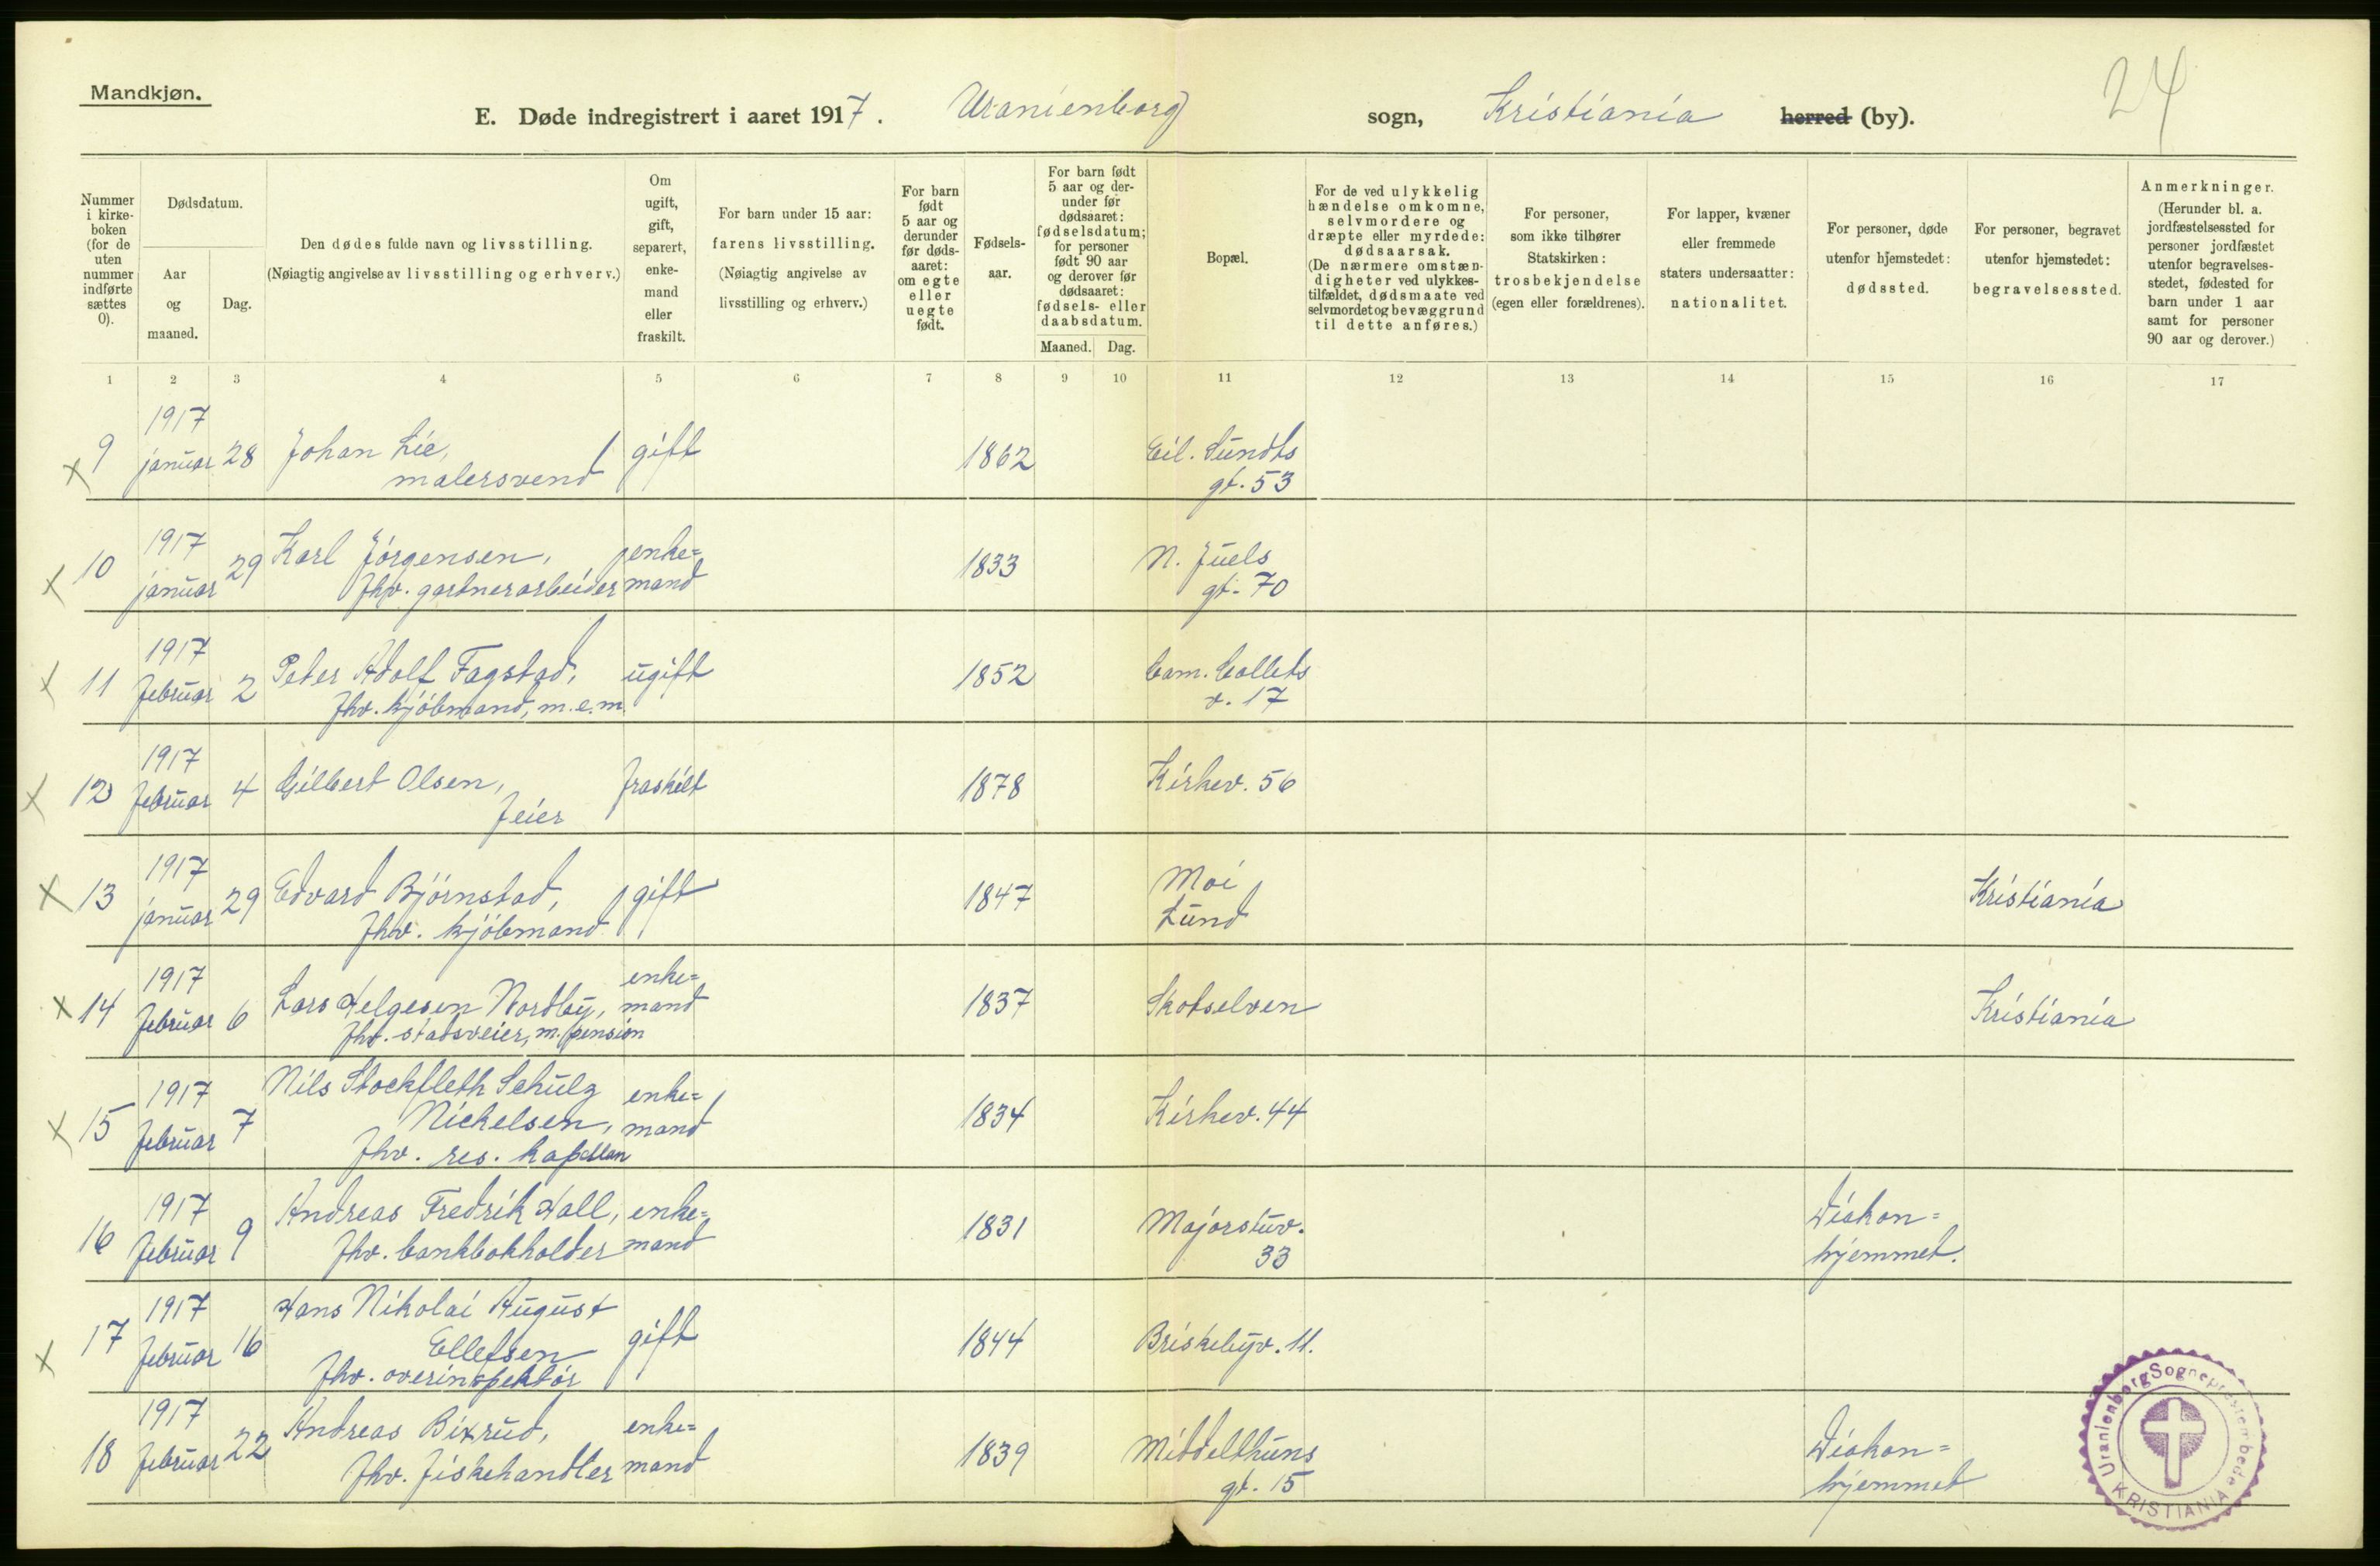 Mandkjøn.
24
E. Døde indregistrert i aaret 1917. Uranienborg sogn, Kristiania herred (by).
Nummer i kirke-boken (for de uten nummer indførte sættes 0).
Dødsdatum.
Aar og maaned.
Dag.
Den dødes fulde navn og livsstilling.
(Nøiagtig angivelse av livsstilling og erhverv.)
Om ugift, gift, separert, enke-mand eller fraskilt.
For barn under 15 aar:
farens livsstilling.
(Nøiagtig angivelse av livsstilling og erhverv.)
For barn født 5 aar og derunder før døds-aaret: om egte eller uegte født.
Fødsels-aar.
For barn født 5 aar og der-under før dødsaaret: fødselsdatum; for personer født 90 aar og derover før dødsaaret: fødsels- eller daabsdatum.
Maaned. Dag.
Bopæl.
For de ved ulykkelig hændelse omkomne, selvmordere og dræpte eller myrdede: dødsaarsak.
(De nærmere omstæn-digheter ved ulykkes-tilfældet, dødsmaate ved selvmordet og bevæggrund til dette anføres.)
For personer, som ikke tilhører Statskirken: trosbekjendelse (egen eller forældrenes).
For lapper, kvæner eller fremmede staters undersaatter: nationalitet.
For personer, døde utenfor hjemstedet: dødssted.
For personer, begravet utenfor hjemstedet: begravelsessted.
Anmerkninger.
(Herunder bl. a. jordfæstelsessted for personer jordfæstet utenfor begravelses-stedet, fødested for barn under 1 aar samt for personer 90 aar og derover.)
1 2 3 4 5 6 7 8 9 10 11 12 13 14 15 16 17
x 9 1917 januar 28 Johan Lie, malersvend gift 1862 Eil. Sundts gt. 53
x 10 1917 januar 29 Karl Jörgensen, fhv. gartnerarbeider enke=mand 1833 N. Juels gt. 70
x 11 1917 februar 2 Peter Adolf Fagstad, fhv. kjöbmand, m.e.m. ugift 1852 Cam. Colletts v. 17
x 12 1917 februar 4 Gilbert Olsen, feier fraskilt 1878 Kirkev. 56
x 13 1917 januar 29 Edvard Björnstad, fhv. kjöbmand gift 1847 Moi Lund Kristiania
x 14 1917 februar 6 Lars Helgesen Nordby, fhv. stadsveier, m. pension enke=mand 1837 Skotselven Kristiania
x 15 1917 februar 7 Nils Stockfleth Schulz Nickelsen, fhv. res. kapellan enke=mand 1834 Kirkev. 44
16 1917 februar 9 Andreas Fredrik Hall, fhv. bankbokholder enke=mand 1831 Majorstuv. 33 Diakon=hjemmet.
x 17 1917 februar 16 Hans Nikolai August Ellefsen fhv. overinspektör gift 1844 Briskebyv. 11.
18 1917 februar 22 Andreas Bixrud, fhv. fiskehandler enke=mand 1839 Middelthuns gt. 15 Diakon=hjemmet
Uranienborg Sogneprestembede
KRISTIANIA